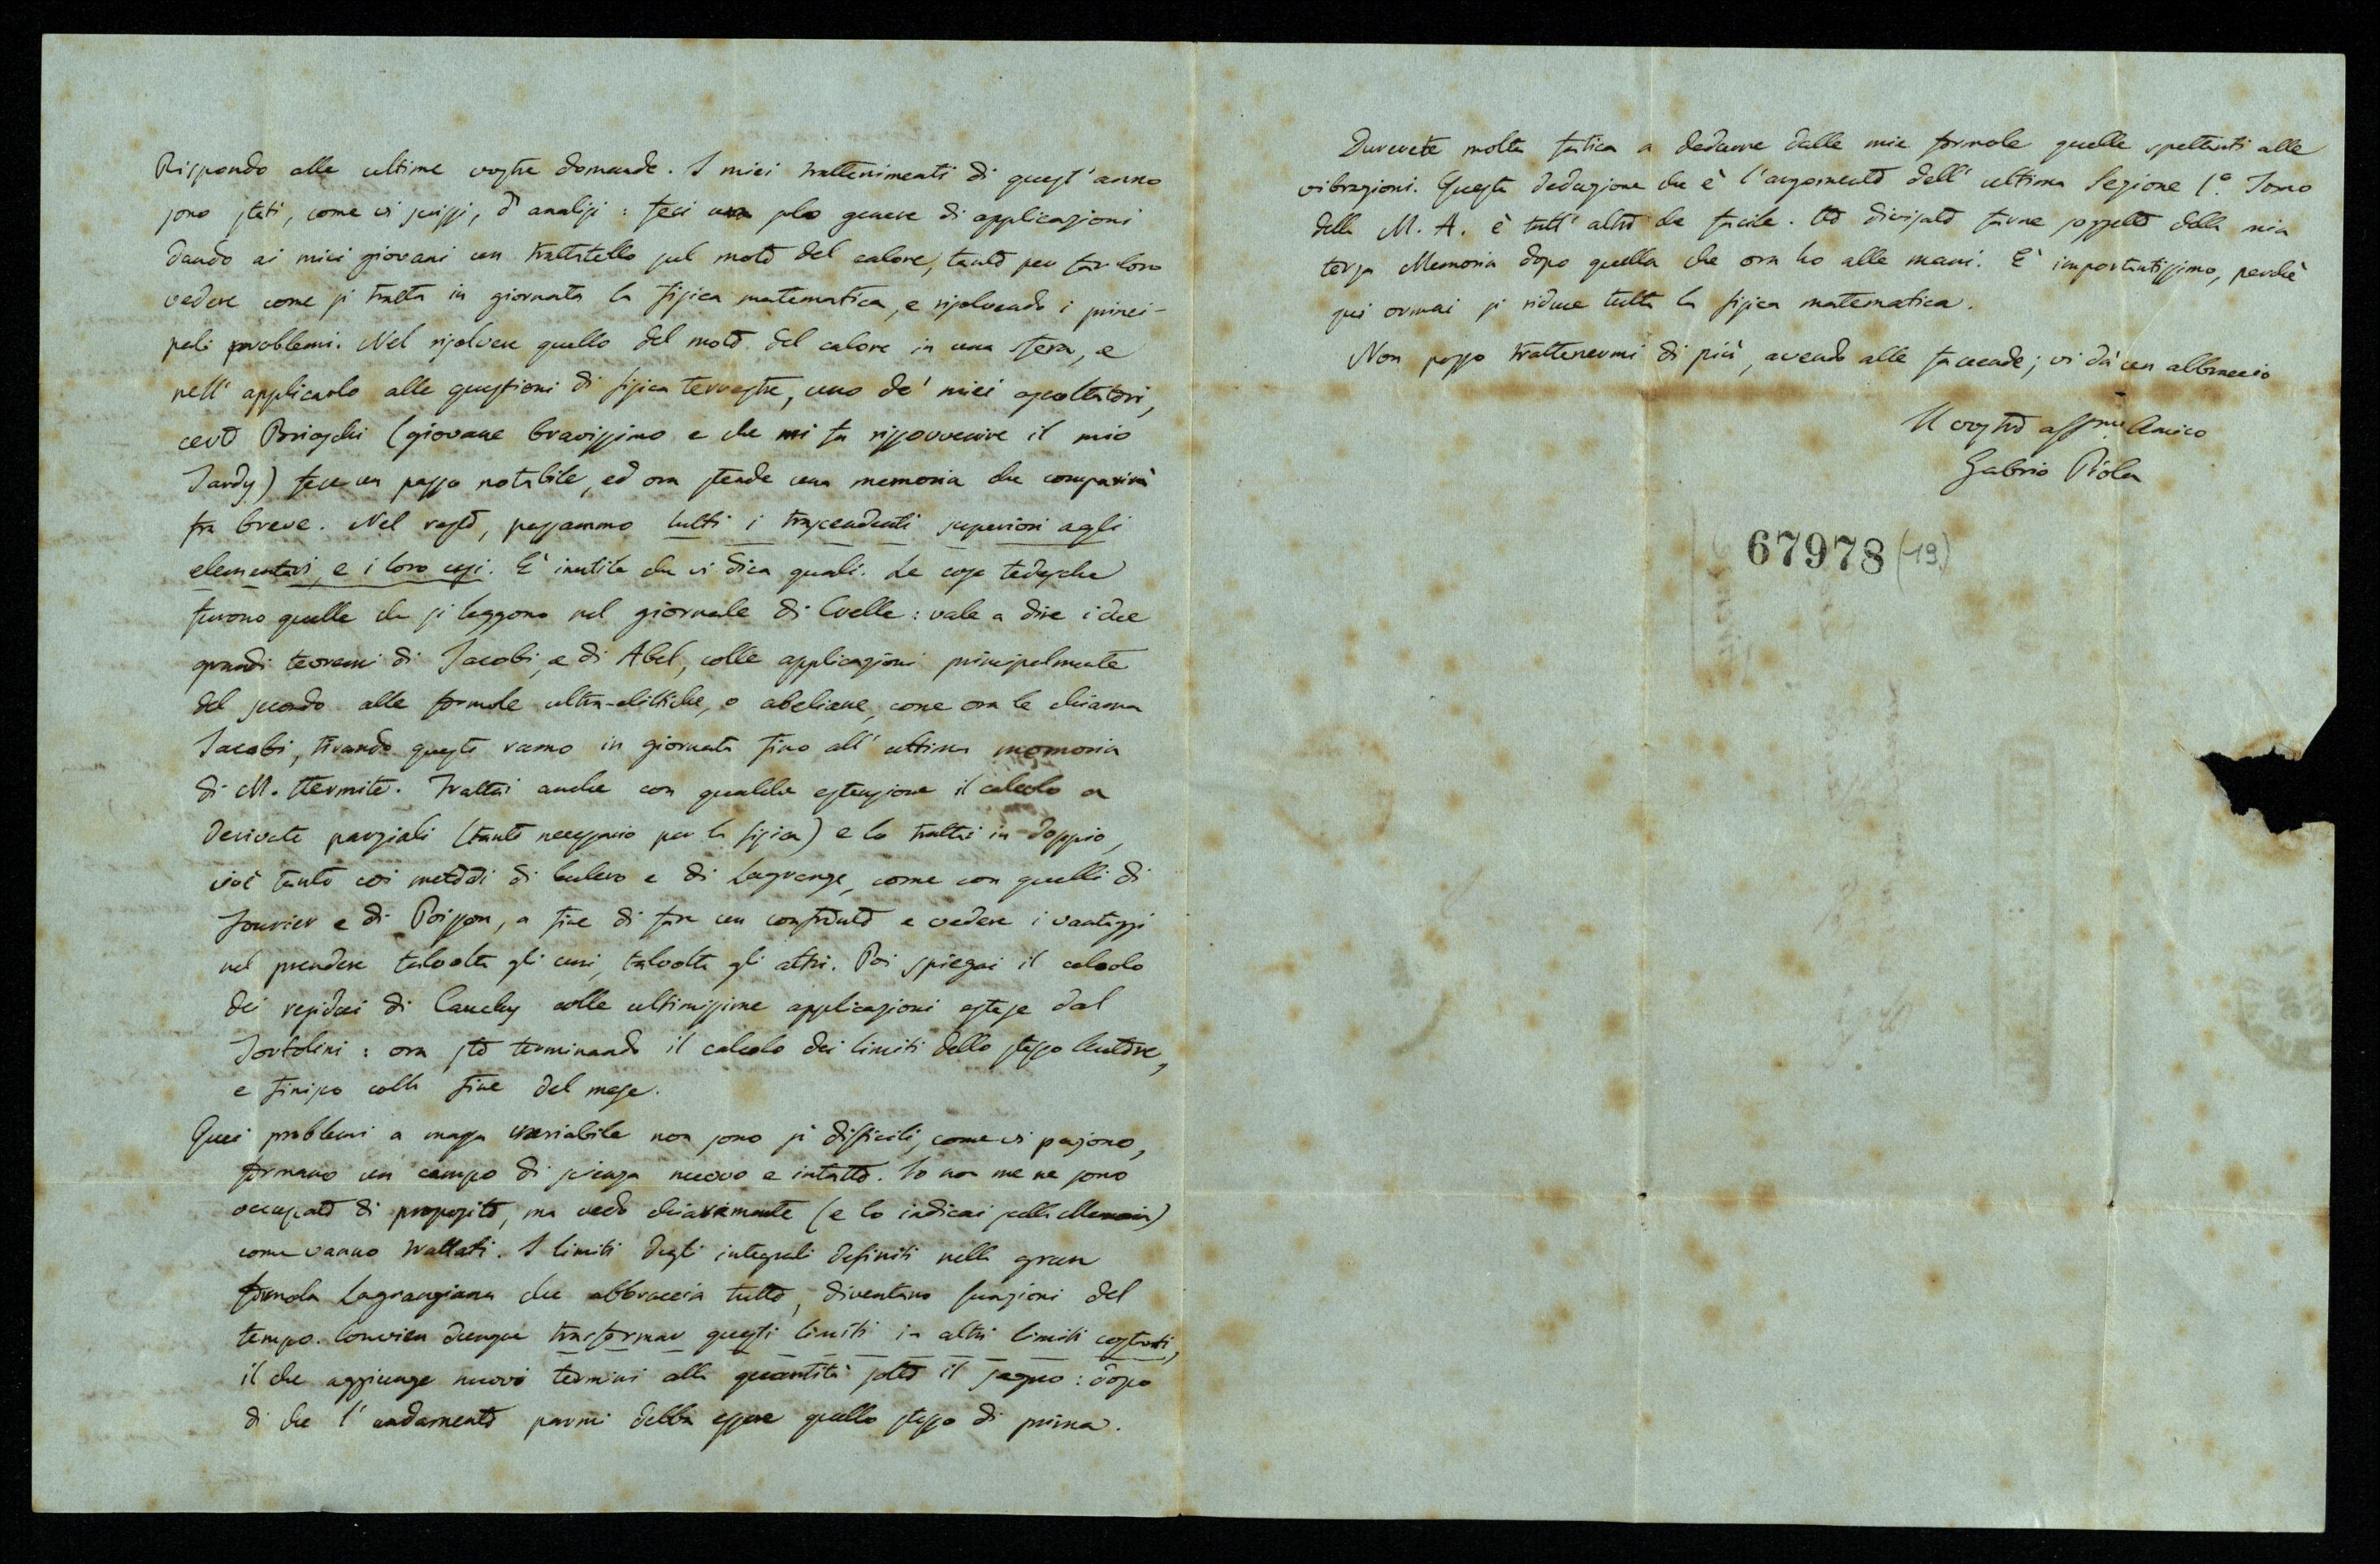 Rispondo alle ultime vostre domande. I miei trattenimenti di quest'anno
sono stati, come vi scrissi, d'analisi: feci un solo genere di applicazioni
dando ai miei giovani un trattatello sul moto del calore, tanto per far loro
vedere come si tratta in giornata la fisica matematica, e risolvendo i princi-
pali problemi. Nel risolvere quello del moto del calore in una sfera, e
nell'applicarlo alle questioni di fisica terrestre, uno de' miei ascoltatori,
certo Brioschi (giovane bravissimo e che mi fa rissovvenire il mio
Tardy) fece un passo notabile, ed ora stende una memoria che comparirà
fra breve. Nel resto, passammo tutti i trascendenti superiori agli
elementari, e i loro usi. E' inutile che vi dica quali. Le cose tedesche
furono quelle che si leggono nel giornale di Crelle: vale a dire i due
grandi teoremi di Jacobi, e di Abel, colle applicazioni principalmente
del secondo alle formole ultra-ellittiche, o abeliane, come ora le chiama
Jacobi, tirando questo ramo in giornata fino all'ultima memoria
di M. Hermite. Trattai anche con qualche estensione il calcolo a
derivate parziali (tanto necessario per la fisica) e lo trattai in doppio,
cioè tanto coi metodi di Eulero e di Lagrange, come con quelli di
Fourier e di Poisson, a fine di fare un confronto e vedere i vantaggi
nel prendere talvolta gli uni, talvolta gli altri. Poi spiegai il calcolo
dei residui di Cauchy colle ultimissime applicazioni estese dal
Tortolini: ora sto terminando il calcolo dei limiti dello stesso Autore,
e finisco colla fine del mese.
Quei problemi a massa variabile non sono sì difficili, come vi pajono,
formano un campo di scienza nuovo e intatto. Io non me ne sono
occupato di proposito, ma vedo chiaramente (e lo indicai nella Memoria)
come vanno trattati. I limiti degli integrali definiti nella gran
formola Lagrangiana che abbraccia tutto, diventano funzioni del
tempo. Convien dunque trasformar questi limiti in altri limiti costanti,
il che aggiunge nuovi termini alla quantità sotto il segno: dopo
di che l'andamento parmi debba essere quello stesso di prima.
Durerete molta fatica a dedurre dalle mie formole quelle spettanti alle
vibrazioni. Questa deduzione che è l'argomento dell'ultima Sezione 1.° Tomo
della M. A. è tutt'altro che facile. Ho divisato farne soggetto della mia
terza Memoria dopo quella che ora ho alle mani. E' importantissimo, perchè
qui ormai si riduce tutta la fisica matematica.
Non posso trattenermi di più, avendo altre faccende; vi dà un abbraccio
Il vostro aff.mo Amico
Gabrio Piola
67978 (19)